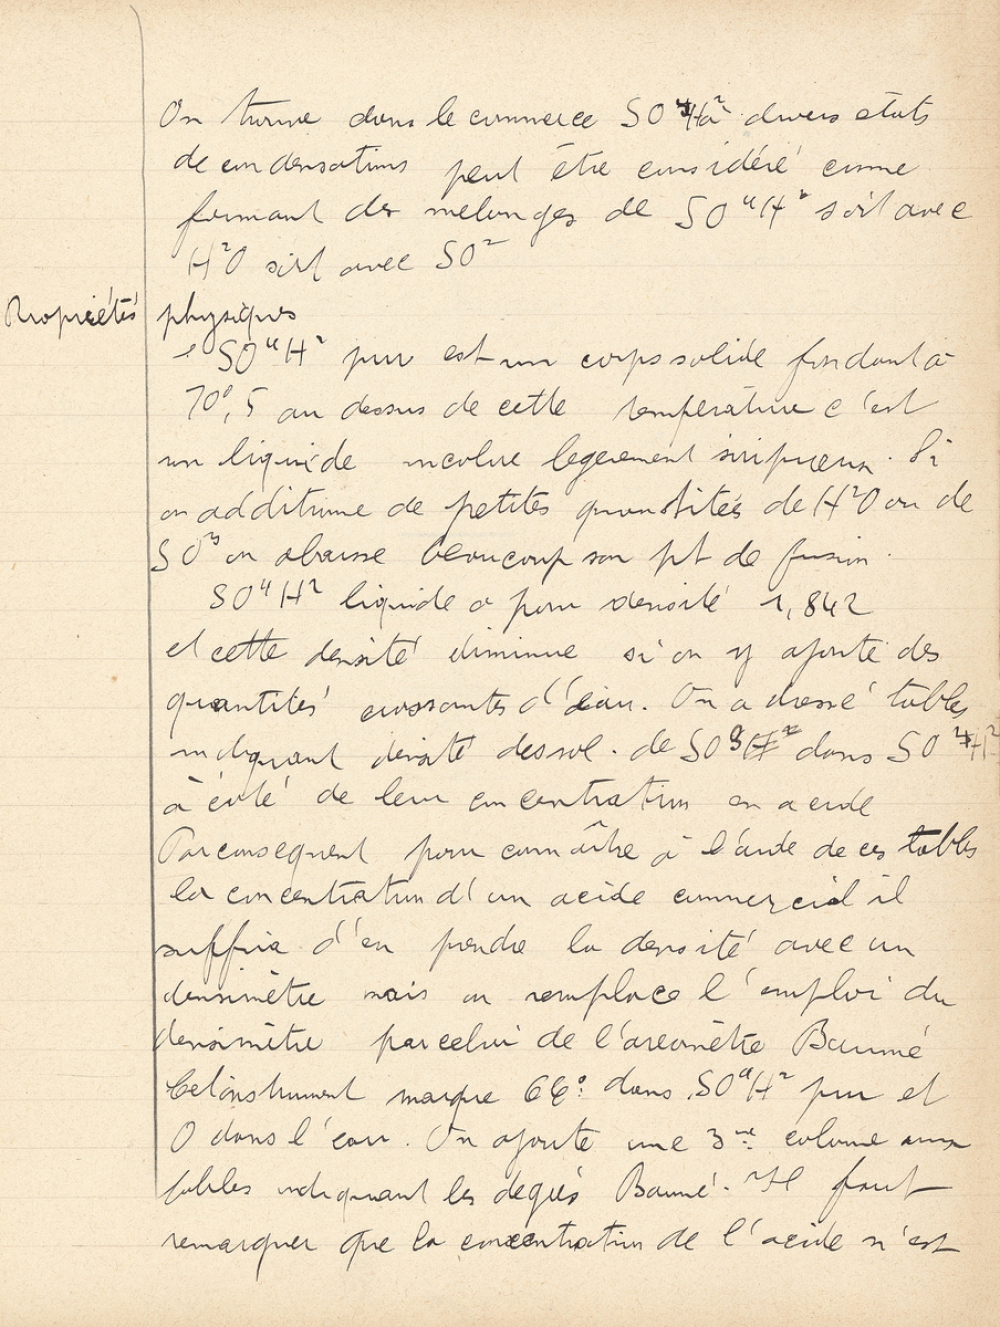 On trouve dans le commerce SO⁴H² à divers états
de condensations peut être considéré comme
formant des mélanges de SO⁴H² soit avec
H²O soit avec SO²
Propriétés physiques
SO⁴H² pur est un corps solide fondant à
10°,5 au dessus de cette température c'est
un liquide incolore legerement sirupeux. Si
on additionne de petites quantités de H²O ou de
SO³ on abaisse beaucoup son pt de fusion.
SO⁴H² liquide a pour densité 1,842
et cette densité diminue si on y ajoute des
quantités croissantes d'eau. On a dressé tables
indiquant densité des sol. de SO³ dans SO⁴H²
à côté de leur concentration en acide
Par consequent pour connaître à l'aide de ces tables
la concentration d'un acide commercial il
suffira d'en prendre la densité avec un
densimètre mais on remplace l'emploi du
densimètre par celui de l'areomètre Baumé
Cet instrument marque 66° dans SO⁴H² pur et
0 dans l'eau. On ajoute une 3me colonne aux
tables indiquant les degrés Baumé. Il faut
remarquer que la concentration de l'acide n'est